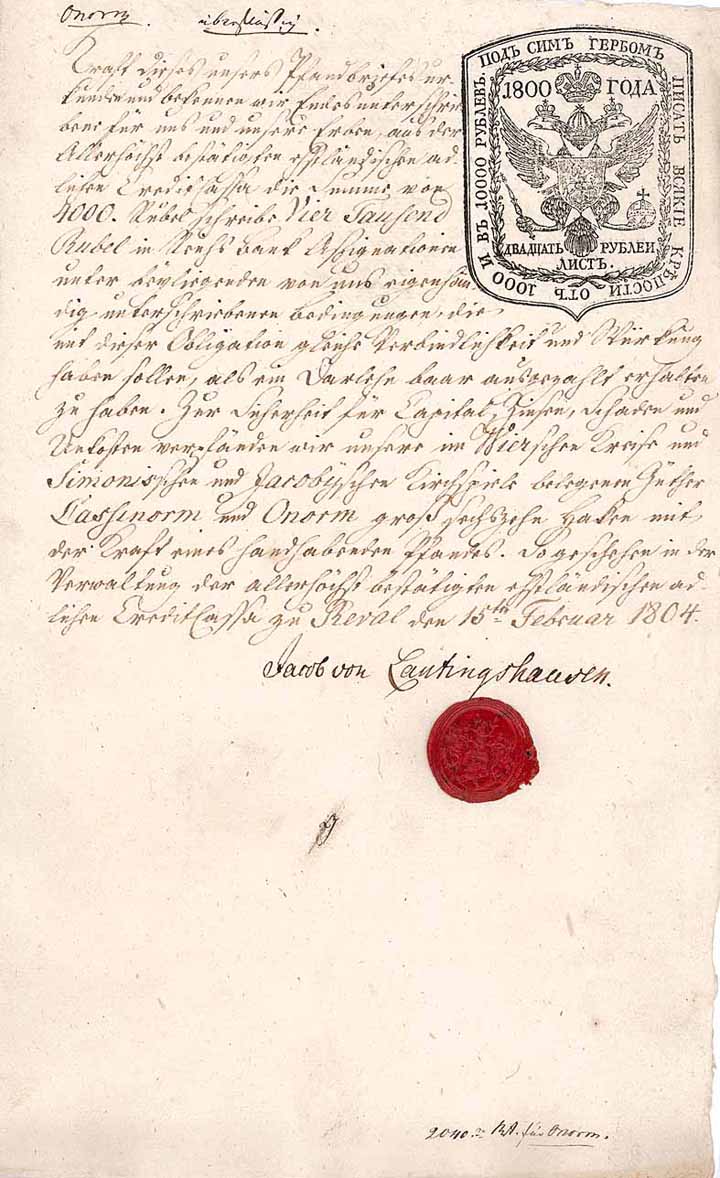 Onorm. überflüssig.
Kraft dieses unsers Pfandbriefes ur-
kunden und bekennen wir Endes unterschrie-
bene für uns und unsere Erben, aus der
Allerhöchst bestätigten ehstländischen ad-
lichen Creditcassa die Summe von
4000. Rubel schreibe Vier Tausend
Rubel in Reichs Banк Assignationen
unter beyliegenden von uns eigenhän-
dig unterschriebenen Bedingungen, die
mit dieser Obligation gleiche Verbindlichkeit und Würkung
haben sollen, als ein Darlehn baar ausgezahlt erhalten
zu haben. Zur Sicherheit für Capital, Zinsen, Schaden und
Unkosten verpfänden wir unsere im Wierschen Kreise und
Simonisschen und Jacobyschen Kirchspiele belegenen Güther
Cassinorm und Onorm groß sechszehn Haken mit
der Kraft eines handhabenden Pfandes. So geschehen in der
Verwaltung der allerhöchst bestätigten ehstländischen ad-
lichen CreditCassa zu Reval den 15ten Februar 1804.
Jacob von Lantingshausen.
ПОДЪ СИМЪ ГЕРБОМЪ ПИСАТЬ ВСЯКІЕ КРѢПОСТИ ОТЪ 1000 И ВЪ 10000 РУБЛЕВЪ.
1800 ГОДА
ДВАДЦАТЬ РУБЛЕИ
ЛИСТЪ.
2040. für Onorm.